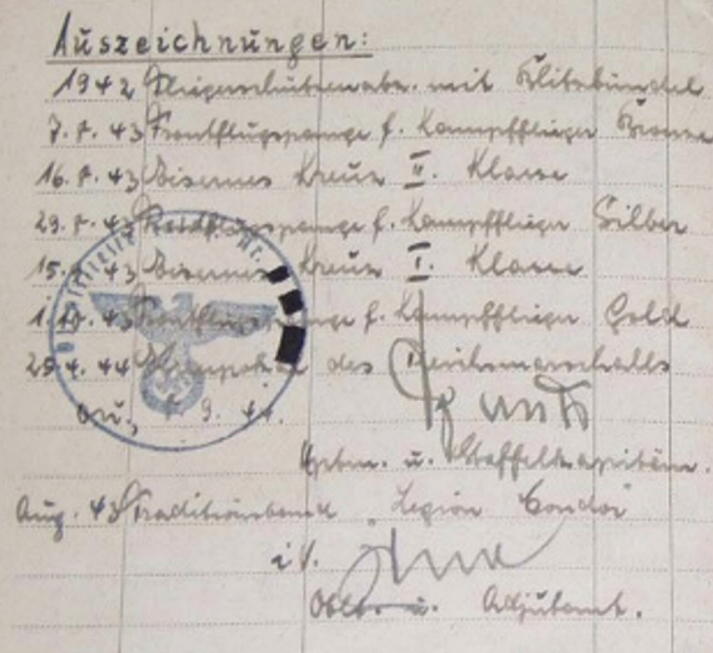 Auszeichnungen:
1942 Fliegerschützenabz. mit Blitzbündel
7.7.43 Frontflugspange f. Kampfflieger Bronze
16.7.43 Eisernes Kreuz II. Klasse
29.7.43 f. Kampfflieger Silber
43 Eisernes Kreuz I. Klasse
43 Frontflugspange f. Kampfflieger Gold
4. 44 Ehrenpokal des Reichsmarschalls
O.U., 9. 44.
Hptm. u. Staffelkapitän.
Aug. 43 Traditionsband "Legion Condor"
i.V.
Oblt. u. Adjutant.